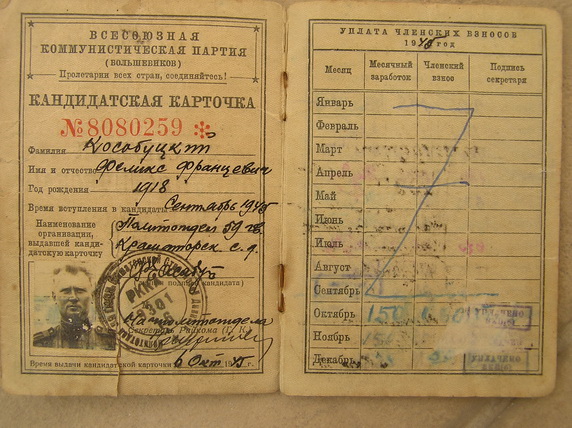 ВСЕСОЮЗНАЯ
КОММУНИСТИЧЕСКАЯ ПАРТИЯ
(БОЛЬШЕВИКОВ)
Пролетарии всех стран, соединяйтесь!
КАНДИДАТСКАЯ КАРТОЧКА
№8080259 *
Фамилия Кособуцкий
Имя и отчество Феликс Францевич
Год рождения 1918
Время вступления в кандидаты Сентябрь 1945
Наименование организации, выдавшей кандидатскую карточку
Политотдел 59 гв.
Краматорск с. д.
подпись кандидата)
Начполитотдела
Секретарь Райкома (Г. К.)
Время выдачи кандидатской карточки 6 Окт 1945 г.
УПЛАТА ЧЛЕНСКИХ ВЗНОСОВ
1945 год
Месяц Месячный заработок Членский взнос Подпись секретаря
Январь
Февраль
Март
Апрель
Май
Июнь
Июль
Август
Сентябрь
Октябрь 150
Ноябрь
Декабрь